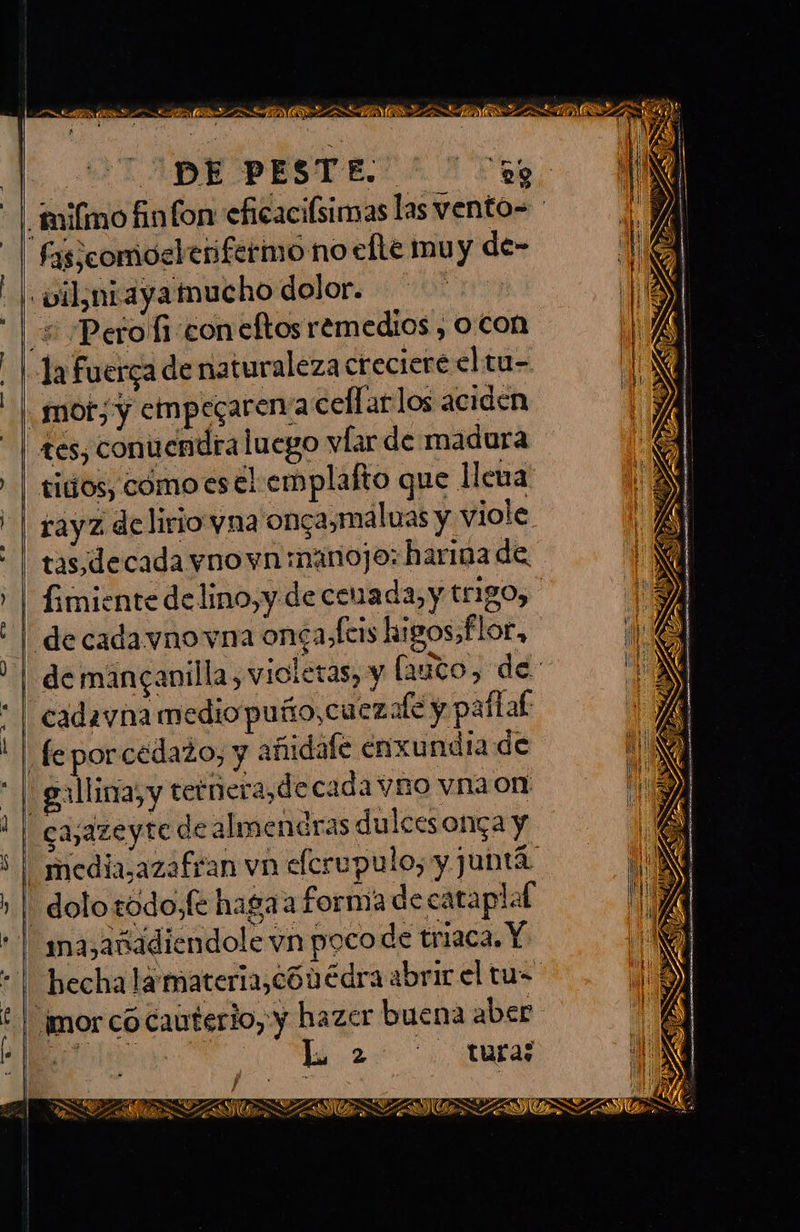 DE PESTE. 89
miſmo ſin ſon eficaciſsimas las vento-
ſas, como el enfermo no eſte muy de-
vil, ni aya mucho dolor.
Pero ſi con eſtos remedios, o con
la fuerça de naturaleza creciere el tu-
mor, y empeçaren a ceſſar los aciden
tes, conuendra luego vſar de madura
tiuos, como es el emplaſto que lleua
rayz de lirio vna onça, maluas y viole
tas, de cada vno vn manojo: harina de
ſimiente de lino, y de ceuada, y trigo,
de cada vno vna onça, ſeis higos, flor,
de mançanilla, violetas, y ſauco, de
cada vna medio puño, cuezaſe y paſſaſ
ſe por cedaço, y añidaſe enxundia de
gallina, y ternera, de cada vno vna on
ça, azeyte de almendras dulces onça y
media, azafran vn eſcrupulo, y juntã
dolo todo, ſe haga a forma de cataplaſ
ma, añadiendole vn poco de triaca. Y
hecha la materia, cõuẽdra abrir el tu-
mor cõ cauterio, y hazer buena aber
L 2 turas